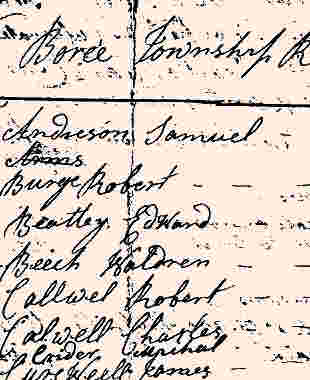 Boree Township R
Andieson Samuel
Arms
Burge Robert
Beatley Edward
Beech Waldren
Callwel Robert
Calwell Charles
Calder
James